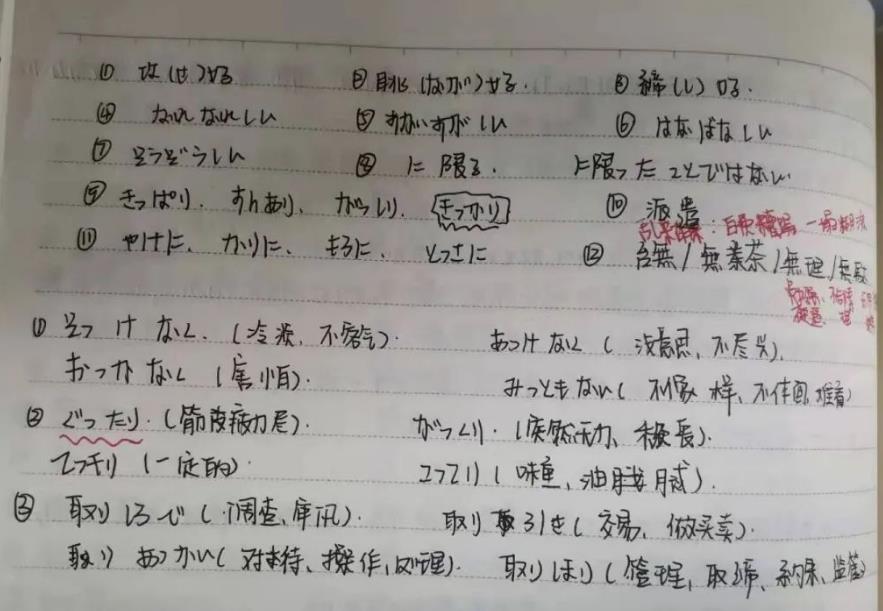 ① 攻(せ)める ② 眺(なが)める. ③ 締(し)める.
④ なれなれしい ⑤ すがすがしい ⑥ はなばなしい
⑦ そうぞうしい ⑧ に限る. に限ったことではない
⑨ きっぱり. すんなり. がっしり. きっかり ⑩ 派遣
⑪ やけに、かりに、もろに、とっさに ⑫ 台無/無茶/無理/無駄
① そっけなく.(冷淡、不客气). あっけなく(没意思、不尽兴).
おっかなく(害怕). みっともない(不像样、不体面,难看)
② ぐったり.(筋疲力尽). がっくり.(突然无力、).
てっきり(一定的). こってり(味重、油腻).
③ 取りしらべ(调查、审讯). 取り引き(交易、做买卖).
取りあつかい(对待、操作,处理). 取りしまり(管理、取缔、约束、监管)